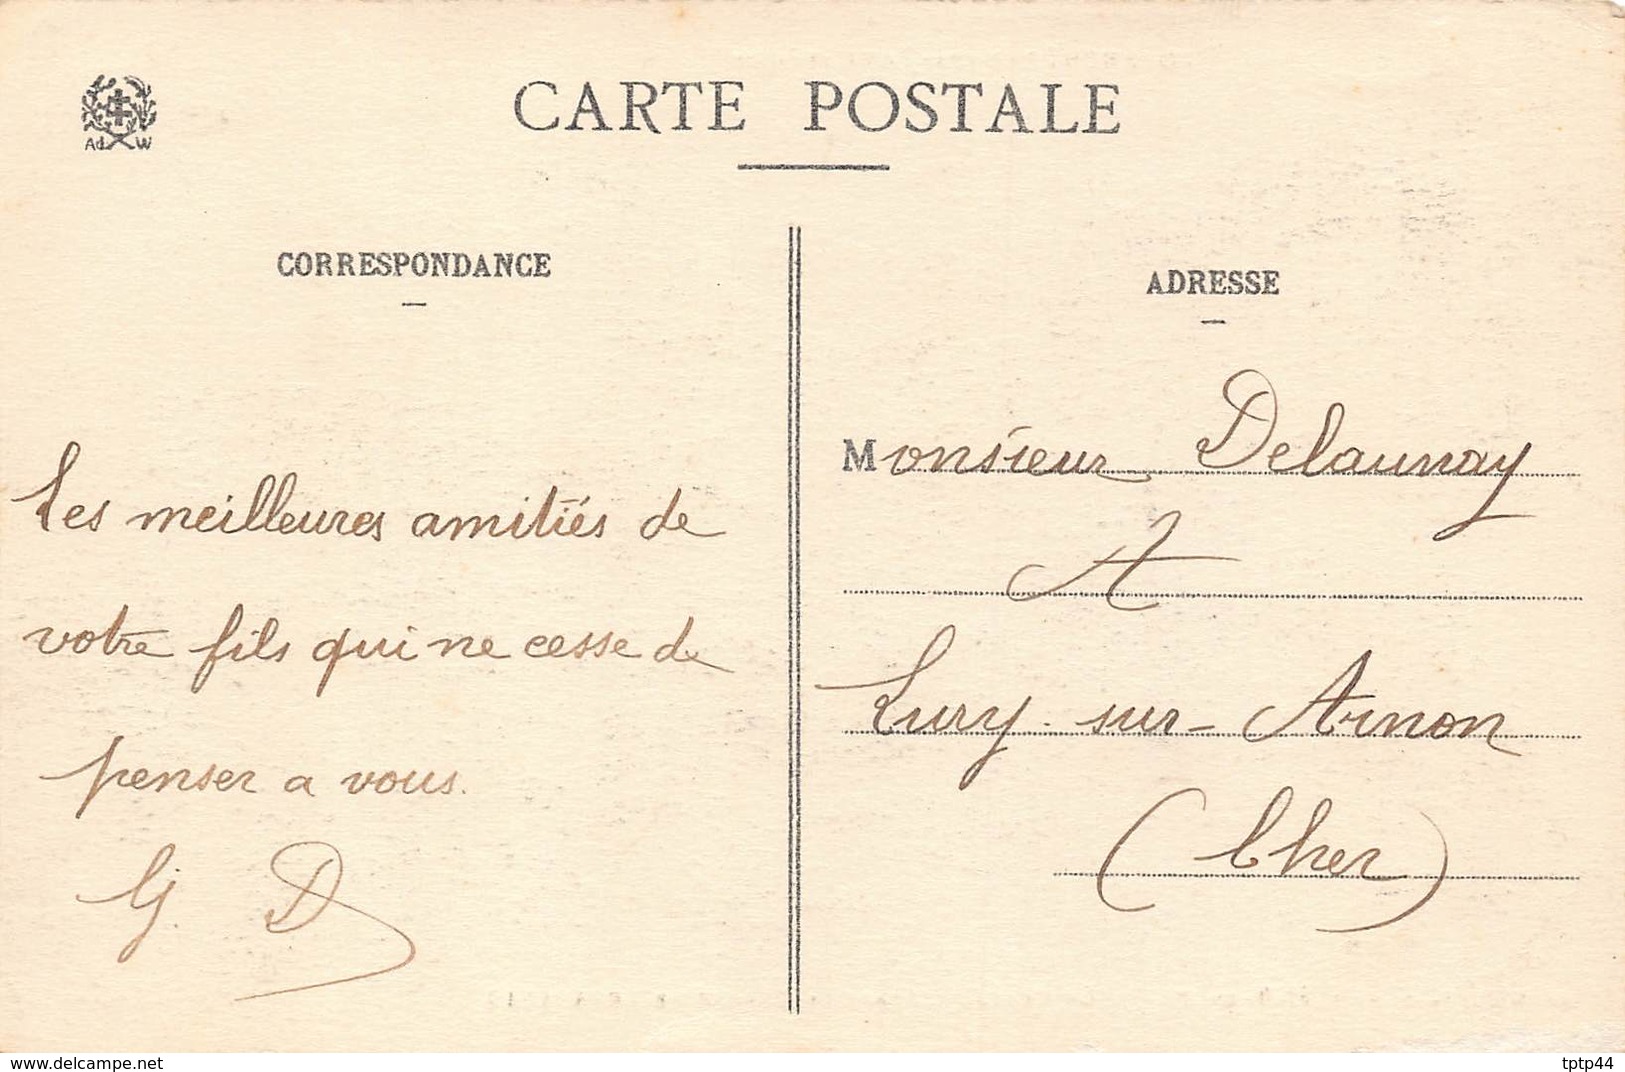 CARTE POSTALE
Ad W
CORRESPONDANCE
Les meilleures amitiés de
votre fils qui ne cesse de
penser a vous.
G. D
ADRESSE
Monsieur Delaunay
A
Lury-sur-Arnon
(Cher)
www.delcampe.net
tptp44